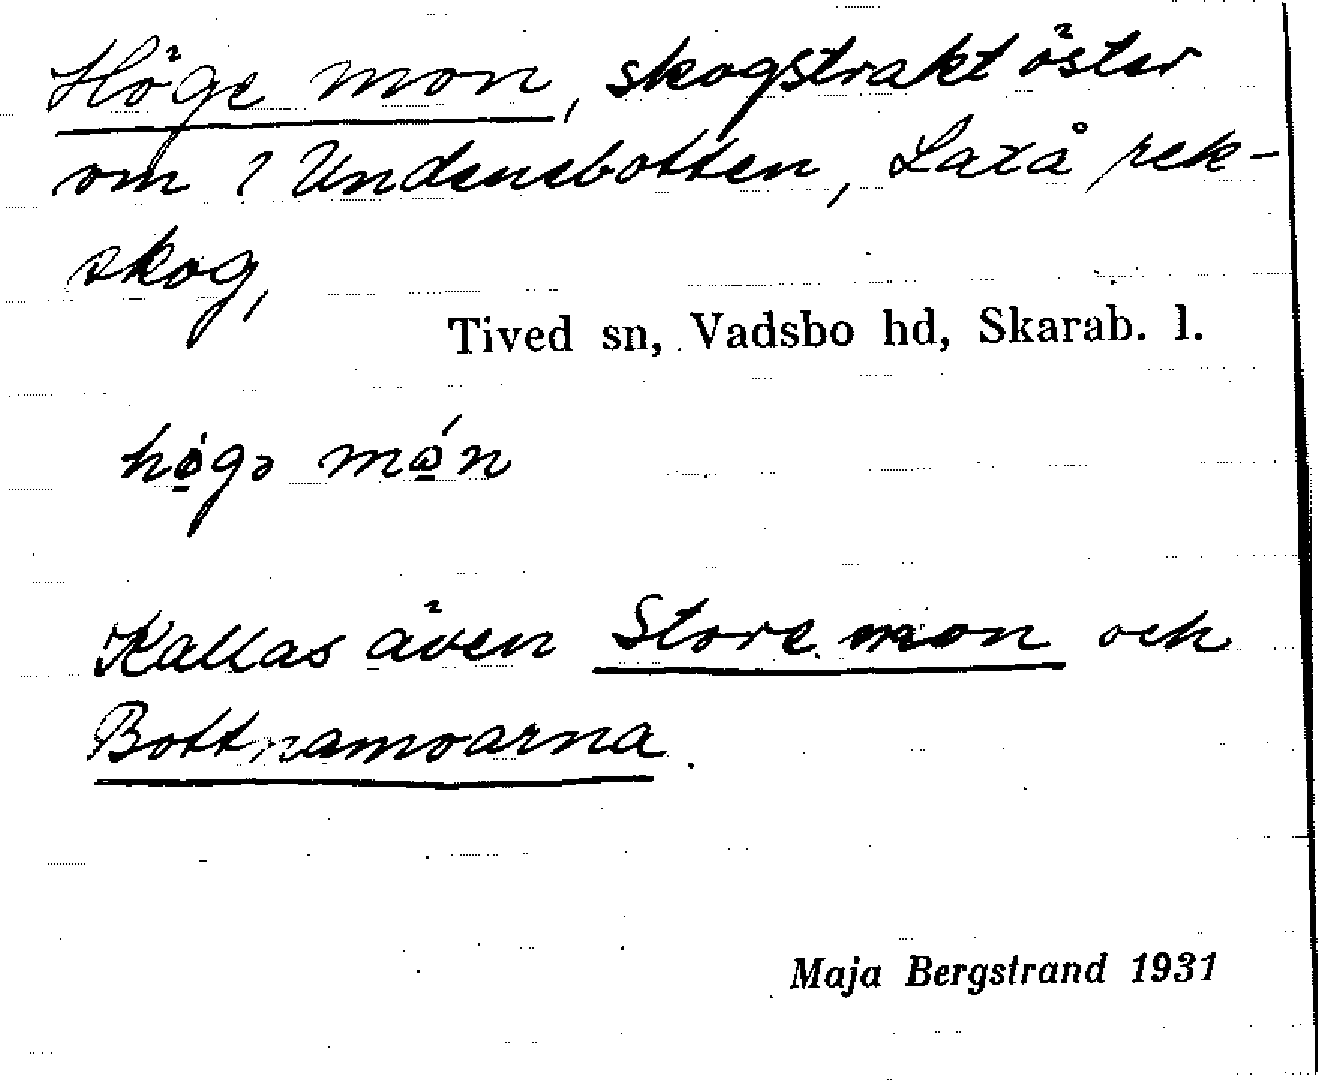 Höge mon, skogstrakt öster
om ? Undenebotten, Laxå rek-
skog,
Tived sn, Vadsbo hd, Skarab. l.
hǿ̱gə mǿ̱n
Kallas även Store mon och
Bottnamoarna.
Maja Bergstrand 1931